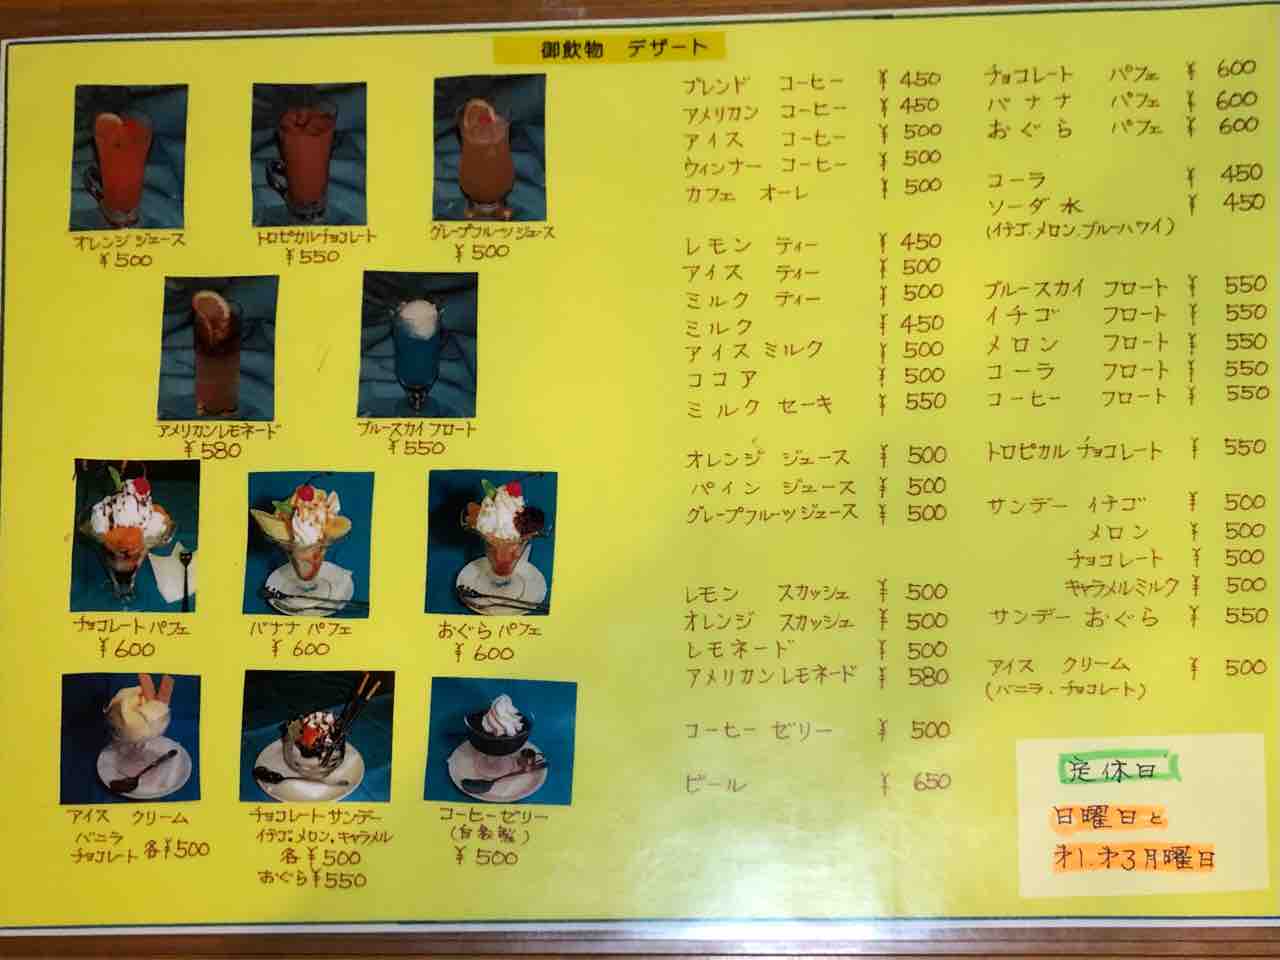 御飲物 デザート
オレンジジュース
¥500
トロピカルチョコレート
¥550
グレープフルーツジュース
¥500
アメリカンレモネード
¥580
ブルースカイフロート
¥550
チョコレートパフェ
¥600
バナナパフェ
¥600
おぐらパフェ
¥600
アイス クリーム
バニラ
チョコレート 各¥500
チョコレートサンデー
イチゴ.メロン.キャラメル
各¥500
おぐら¥550
コーヒーゼリー
(自家製)
¥500
ブレンド コーヒー ¥450
アメリカン コーヒー ¥450
アイス コーヒー ¥500
ウィンナー コーヒー ¥500
カフェ オーレ ¥500
レモン ティー ¥450
アイス ティー ¥500
ミルク ティー ¥500
ミルク ¥450
アイスミルク ¥500
ココア ¥500
ミルク セーキ ¥550
オレンジ ジュース ¥500
パイン ジュース ¥500
グレープフルーツジュース ¥500
レモン スカッシュ ¥500
オレンジ スカッシュ ¥500
レモネード ¥500
アメリカンレモネード ¥580
コーヒー ゼリー ¥500
ビール ¥650
チョコレート パフェ ¥600
バナナ パフェ ¥600
おぐら パフェ ¥600
コーラ ¥450
ソーダ水 ¥450
(イチゴ.メロン.ブルーハワイ)
ブルースカイ フロート ¥550
イチゴ フロート ¥550
メロン フロート ¥550
コーラ フロート ¥550
コーヒー フロート ¥550
トロピカルチョコレート ¥550
サンデー イチゴ ¥500
メロン ¥500
チョコレート ¥500
キャラメルミルク ¥500
サンデー おぐら ¥550
アイス クリーム ¥500
(バニラ.チョコレート)
定休日
日曜日と
才1.才3月曜日